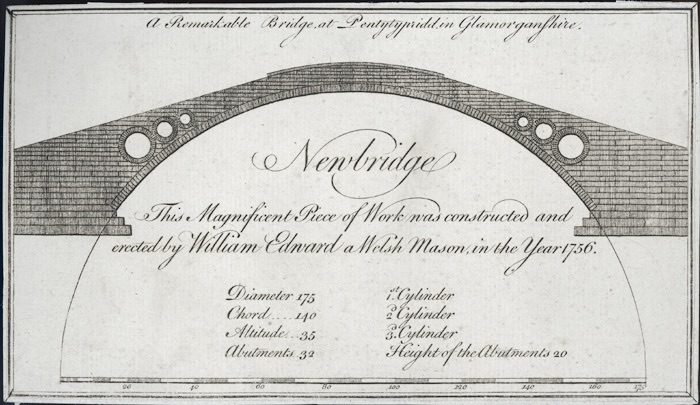 A Remarkable Bridge, at Pentytypridd, in Glamorganshire.
Newbridge
This Magnificent Piece of Work was constructed and
erected by William Edward a Welsh Mason, in the Year 1756.
Diameter 175
Chord .... 140
Altitude .. 35
Abutments. 32
1st. Cylinder
2d. Cylinder
3d. Cylinder
Height of the Abutments 20
20 40 60 80 100 120 140 160 175